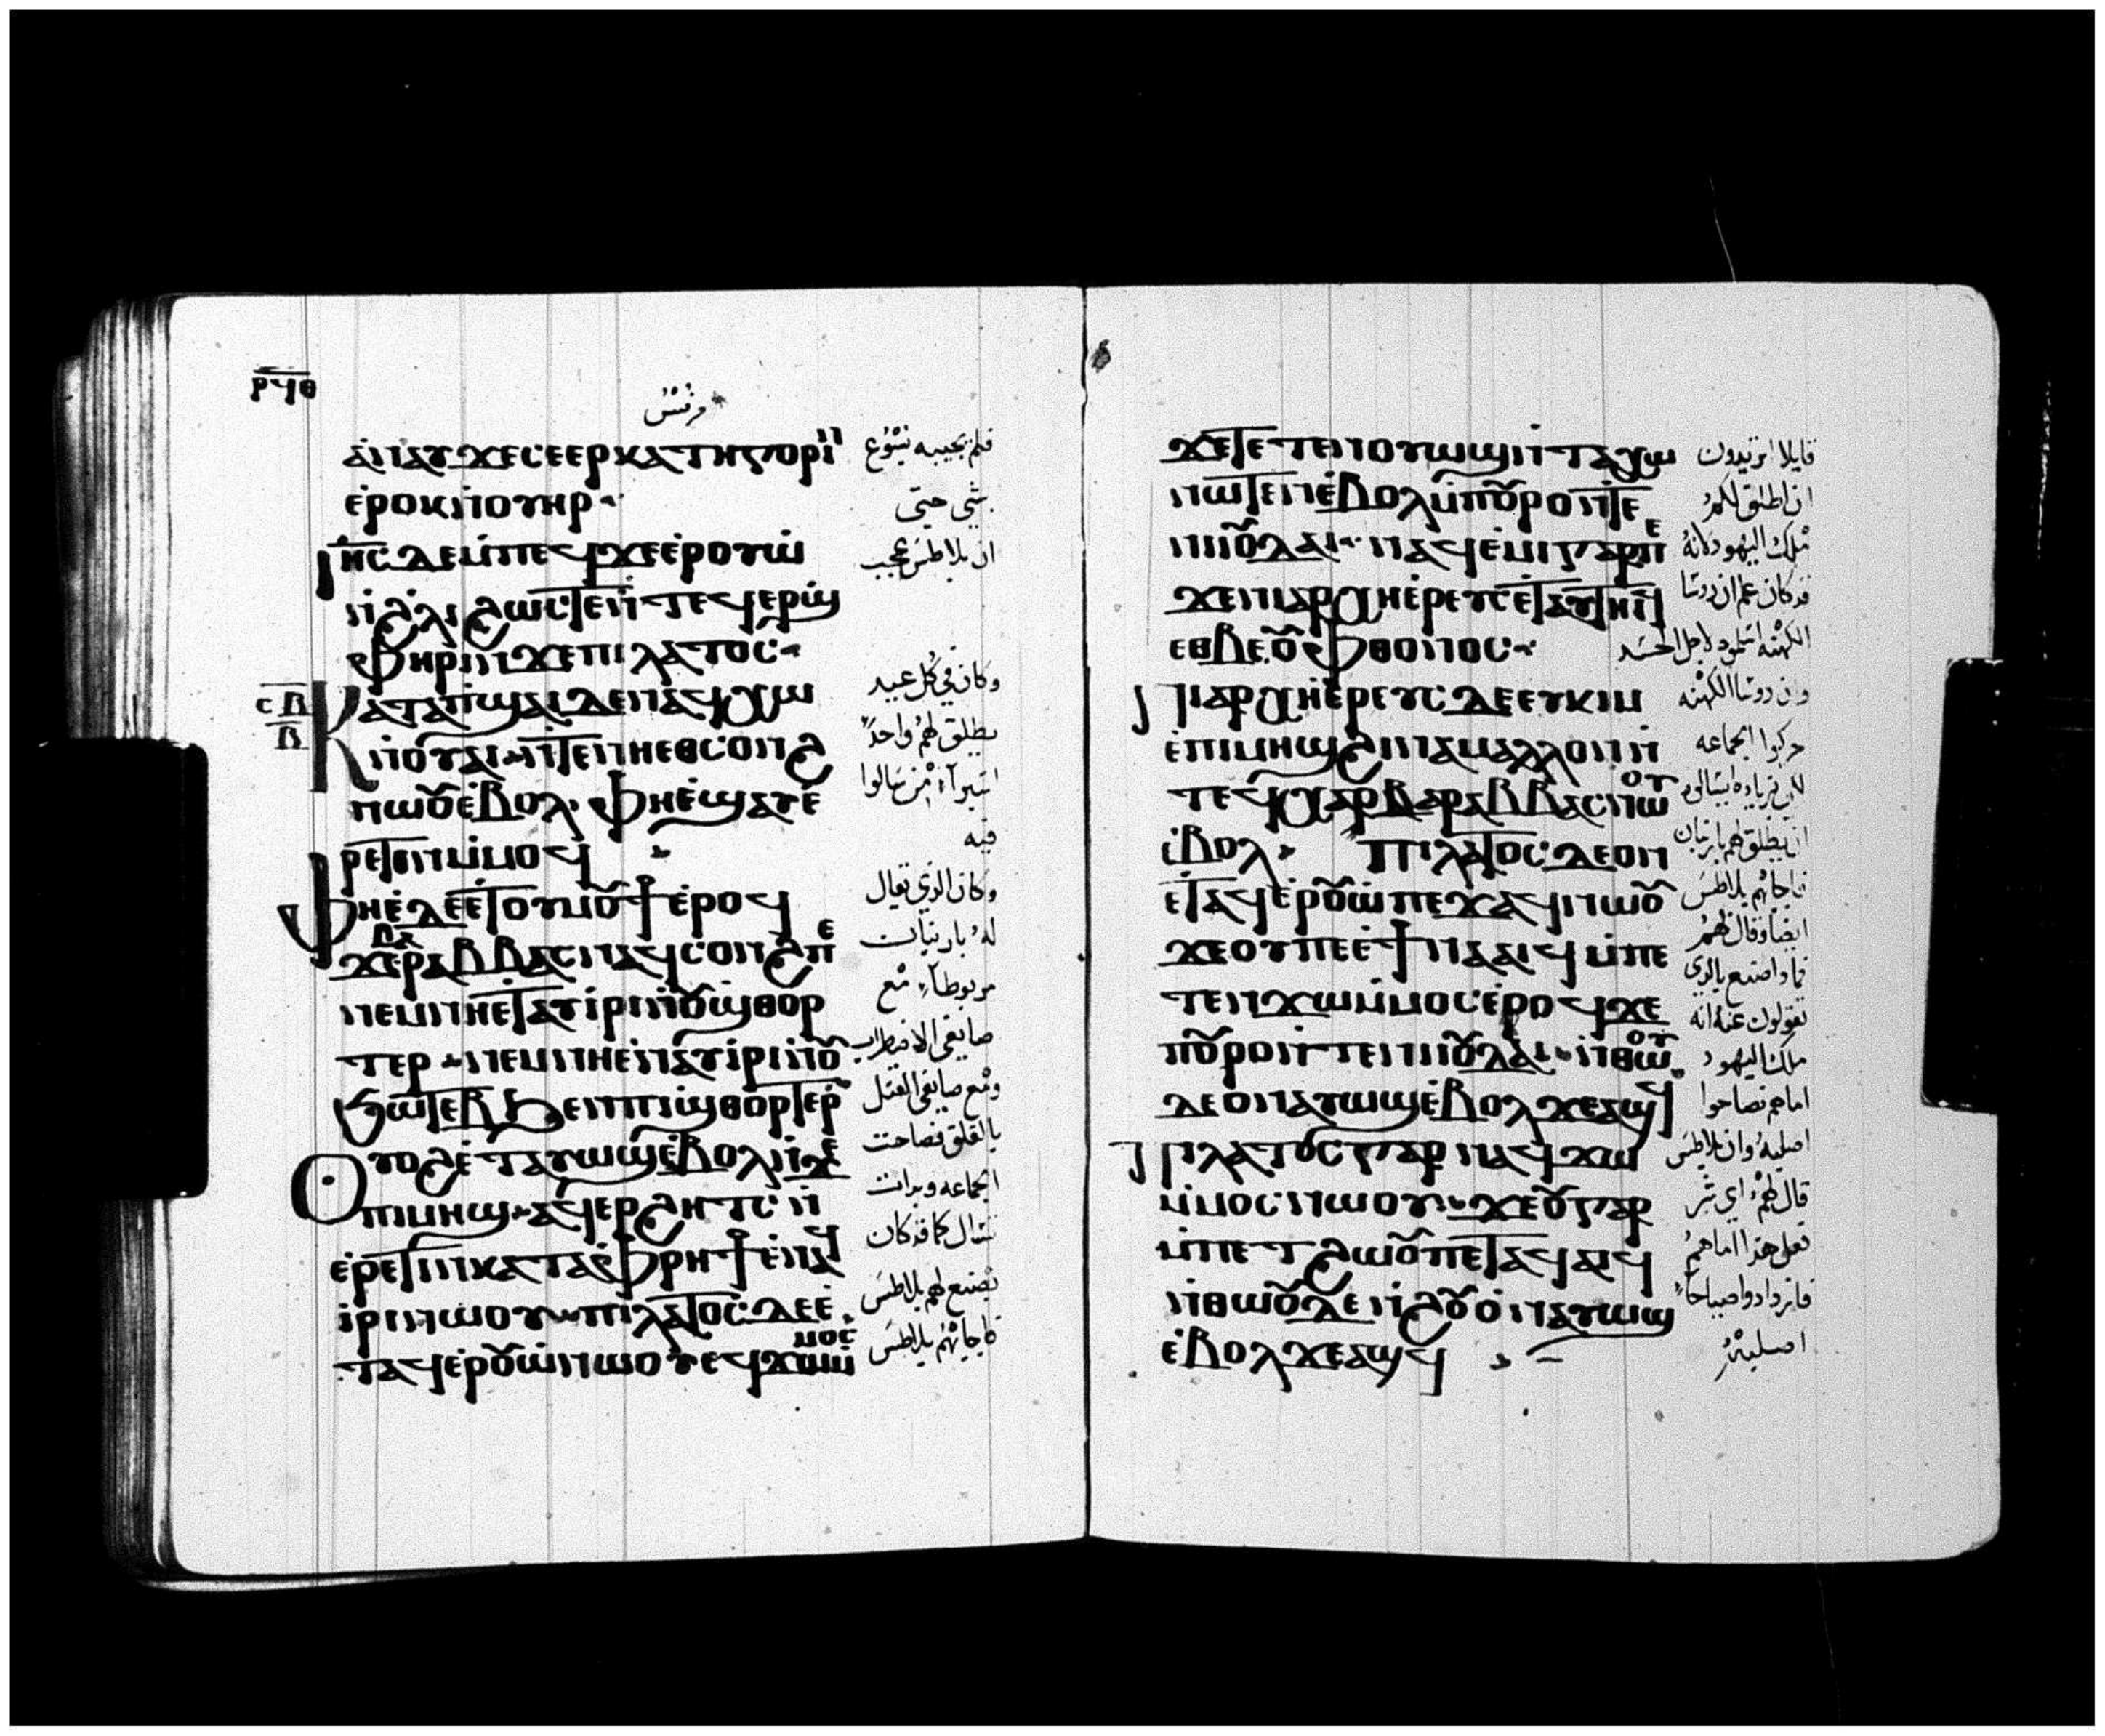 ⲣϥⲑ
مرقس
ⲁ̀ⲛⲁⲩ ϫⲉ ⲥⲉⲉⲣⲕⲁⲧⲏⲅⲟⲣⲓⲛ
ⲉ̀ⲣⲟⲕ ⲛ̀ⲟⲩⲏⲣ
ⲓⲏⲥ ⲇⲉ ⲙ̀ⲡⲉϥϫⲉ ⲉ̀ⲣⲟⲩⲱ̀
ⲛ̀ϩⲗⲓ ϩⲱⲥⲧⲉ ⲛ̀ⲧⲉϥⲉⲣϣ
ⲫⲏⲣⲓ ⲛ̀ϫⲉ ⲡⲓⲗⲁⲧⲟⲥ
ⲥⲃ
ⲃ
ⲕⲁⲧⲁ ⲡ̀ϣⲁⲓ ⲇⲉ ⲛⲁϥⲭⲱ
ⲛ̀ⲟⲩⲁⲓ ⲛ̀ⲧⲉ ⲛⲏⲉⲑⲥⲟⲛϩ
ⲛⲱⲟⲩ ⲉ̀ⲃⲟⲗ ⲫⲏⲉ̀ϣⲁⲩⲉ̀
ⲣⲉⲧⲓⲛ ⲙ̀ⲙⲟϥ
ⲫⲏ ⲉ̀ⲇⲉ ⲉ̀ⲧⲟⲩⲙⲟⲩϯ ⲉ̀ⲣⲟϥ
ϫⲉ ⲃⲁⲣⲁⲃⲃⲁⲥ ⲛⲁϥⲥⲟⲛϩ ⲡⲉ
ⲛⲉⲙ ⲛⲏⲉ̀ⲧⲁⲩⲓ̀ⲣⲓ ⲛ̀ⲟⲩϣ̀ⲑⲟⲣ
ⲧⲉⲣ ⲛⲉⲙ ⲛⲏⲉ̀ⲛⲁⲩⲓ̀ⲣⲓ ⲛ̀ⲟⲩ
ϧⲱⲧⲉⲃ ϧⲉⲛ ⲡⲓϣ̀ⲑⲟⲣⲧⲉⲣ
ⲟⲩⲟϩ ⲉ̀ⲧⲁⲩⲱϣ ⲉ̀ⲃⲟⲗ ⲛ̀ϫⲉ
ⲡⲓⲙⲏϣ ⲁϥⲉⲣϩⲏⲧⲥ ⲛ̀
ⲉ̀ⲣⲉⲧⲓⲛ ⲕⲁⲧⲁ ⲫ̀ⲣⲏϯ ⲉ̀ⲛⲁϥ
ⲓ̀ⲣⲓ ⲛⲱⲟⲩ ⲡⲓⲗⲁⲧⲟⲥ ⲇⲉ ⲉ̀
ⲧⲁϥⲉ̀ⲣⲟⲩⲱ̀ ⲛⲱⲟⲩ ⲉϥϫⲱ ⲙ̀ⲙⲟⲥ
فلم يجيبه يسوع
بشي حتى
ان بلاطس عجب
وكان في كل عيد
يطلق لهم واحدًا
اسيرآ من سالوا
فيه
وكان الذي يقال
له باربان
مربوطآ مع
صانعي الاضطراب
ومع صانعي القتل
بالقلق فصاحت
الجماعه وبدات
تسال كما قد كان
يصنع لهم بلاطس
فاجابهم بلاطس
ϫⲉ ⲧⲉⲧⲉⲛⲟⲩⲱϣ ⲛ̀ⲧⲁⲭⲱ
ⲛⲱⲧⲉⲛ ⲉ̀ⲃⲟⲗ ⲙ̀ⲡⲟⲩⲣⲟ ⲛ̀ⲧⲉ
ⲛⲓⲓⲟⲩⲇⲁⲓ ⲛⲁϥⲉ̀ⲙⲓ ⲅⲁⲣ ⲡⲉ
ϫⲉ ⲛⲓⲁⲣⲭⲏⲉ̀ⲣⲉⲩⲥ ⲉ̀ⲧⲁⲩⲧⲏⲓϥ
ⲉⲑⲃⲉ ⲟⲩⲫ̀ⲑⲟⲛⲟⲥ
ⲛⲓⲁⲣⲭⲏⲉ̀ⲣⲉⲩⲥ ⲇⲉ ⲉⲩⲕⲓⲙ
ⲉ̀ⲡⲓⲙⲏϣ ϩⲓⲛⲁ ⲙⲁⲗⲗⲟⲛ ⲛ̀
ⲧⲉϥⲭⲁ ⲃⲁⲣⲁⲃⲃⲁⲥ ⲛⲱⲟⲩ
ⲉ̀ⲃⲟⲗ ⲡⲓⲗⲁⲧⲟⲥ ⲇⲉ ⲟⲛ
ⲉ̀ⲧⲁϥⲉ̀ⲣⲟⲩⲱ̀ ⲡⲉϫⲁϥ ⲛⲱⲟⲩ
ϫⲉ ⲟⲩ ⲡⲉ ⲉ̀ϯⲛⲁⲁⲓϥ ⲙ̀ⲡⲉ
ⲧⲉⲛϫⲱ ⲙ̀ⲙⲟⲥ ⲉ̀ⲣⲟϥ ϫⲉ
ⲡⲟⲩⲣⲟ ⲛ̀ⲧⲉ ⲛⲓⲓⲟⲩⲇⲁⲓ ⲛ̀ⲑⲱⲟⲩ
ⲇⲉ ⲟⲛ ⲁⲩⲱϣ ⲉ̀ⲃⲟⲗ ϫⲉ ⲁϣϥ
ⲡⲓⲗⲁⲧⲟⲥ ⲅⲁⲣ ⲛⲁϥϫⲱ
ⲙ̀ⲙⲟⲥ ⲛⲱⲟⲩ ϫⲉ ⲟⲩ ⲅⲁⲣ
ⲙ̀ⲡⲉⲧϩⲱⲟⲩ ⲡⲉⲧⲁϥⲁⲓϥ
ⲛ̀ⲑⲱⲟⲩ ⲇⲉ ⲛ̀ϩⲟⲩⲟ̀ ⲛⲁⲩⲱϣ
ⲉ̀ⲃⲟⲗ ϫⲉ ⲁϣϥ
قايلا اتريدون
ان اطلق لكم
ملك اليهود لانه
قد كان علم ان روسا
الكهنه اسلموه لاجل الحسد
وان روسا الكهنه
حركوا الجماعه
ان يطلق لهم باربان
فاجابهم بلاطس
ايضا وقال لهم
فماذا اصنع بالذي
تقولون عنه انه
ملك اليهود
اما هم فصاحوا
اصلبه وان بلاطس
قال لهم اي شر
فعل هذا اما هم
فازدادوا صياحًا
اصلبه